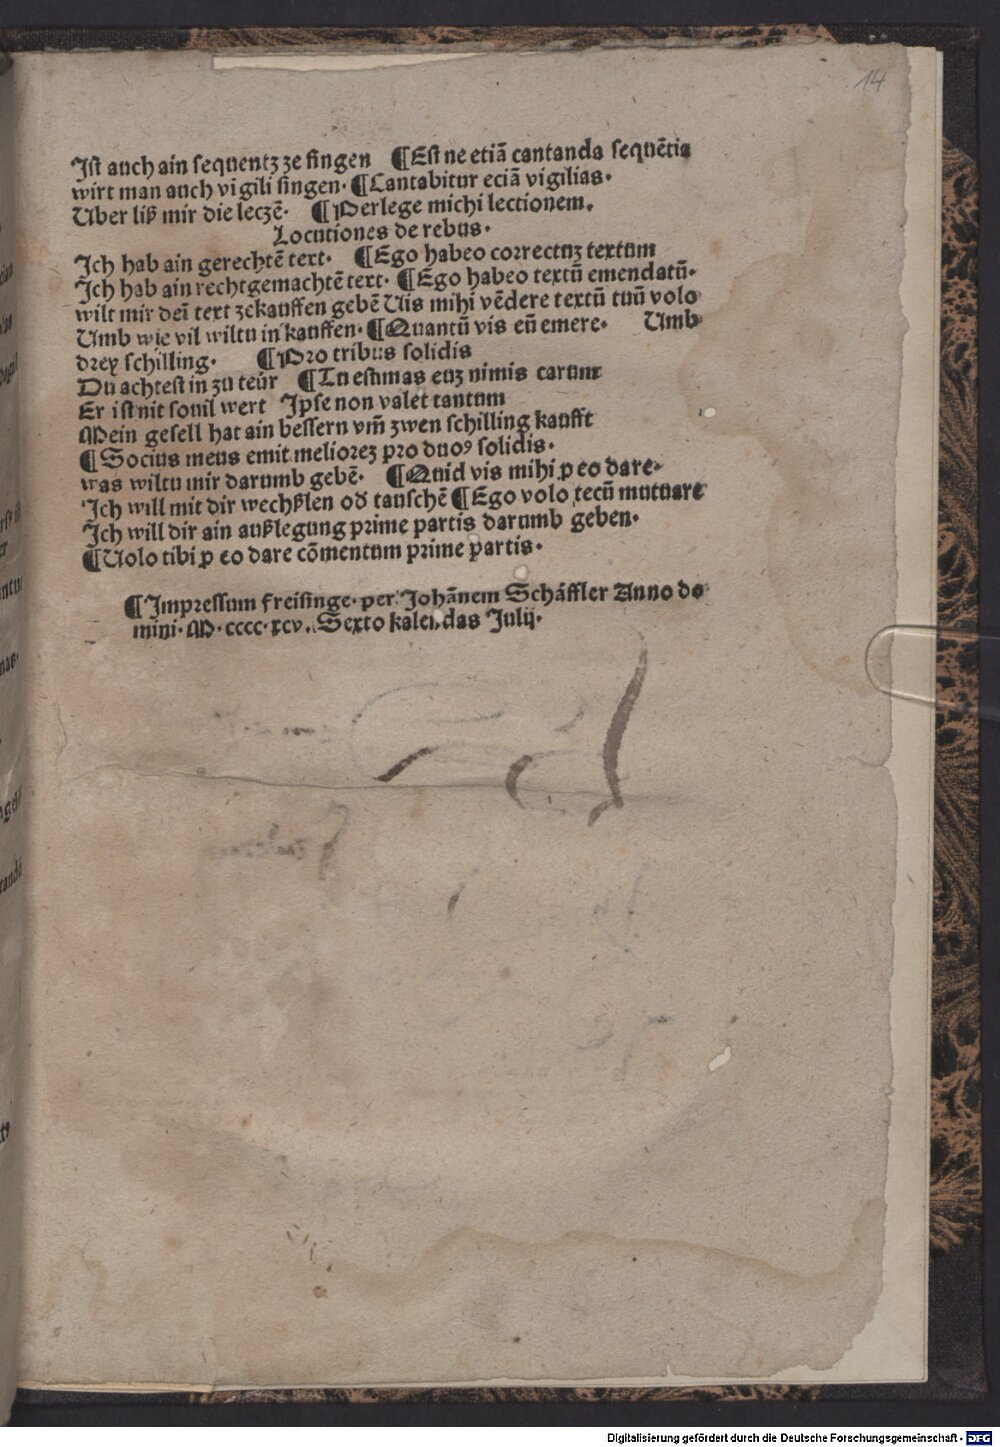 14
Ist auch ain sequentz ze singen ¶Est ne etiã cantanda sequẽtia
wirt man auch vigili singen· ¶Cantabitur eciã vigilias·
Uber liß mir die leczẽ· ¶Perlege michi lectionem.
Locutiones de rebus·
Ich hab ain gerechtẽ text· ¶Ego habeo correctuꝫ textum
Ich hab ain rechtgemachtẽ text· ¶Ego habeo textũ emendatũ·
wilt mir deĩ text zekauffen gebẽ Uis mihi vẽdere textũ tuũ volo
Umb wie vil wiltu in kauffen· ¶Quantũ vis eũ emere· Umb
drey schilling· ¶Pro tribus solidis
Du achtest in zu teür ¶Tu estimas euꝫ nimis carum
Er ist nit souil wert Ipse non valet tantum
Mein gesell hat ain bessern vm̃ zwen schilling kaufft
¶Socius meus emit melioreꝫ pro duoꝰ solidis·
was wiltu mir darumb gebẽ· ¶Quid vis mihi ꝑ eo dare·
Ich will mit dir wechßlen od tauschẽ ¶Ego volo tecũ mutuare
Ich will dir ain außlegung prime partis darumb geben·
¶Uolo tibi ꝑ eo dare cõmentum prime partis·
¶Impressum freisinge· per Johãnem Schäffler Anno do
mini· M· cccc· xcv. Sexto kalendas Julij·
Digitalisierung gefördert durch die Deutsche Forschungsgemeinschaft - DFG